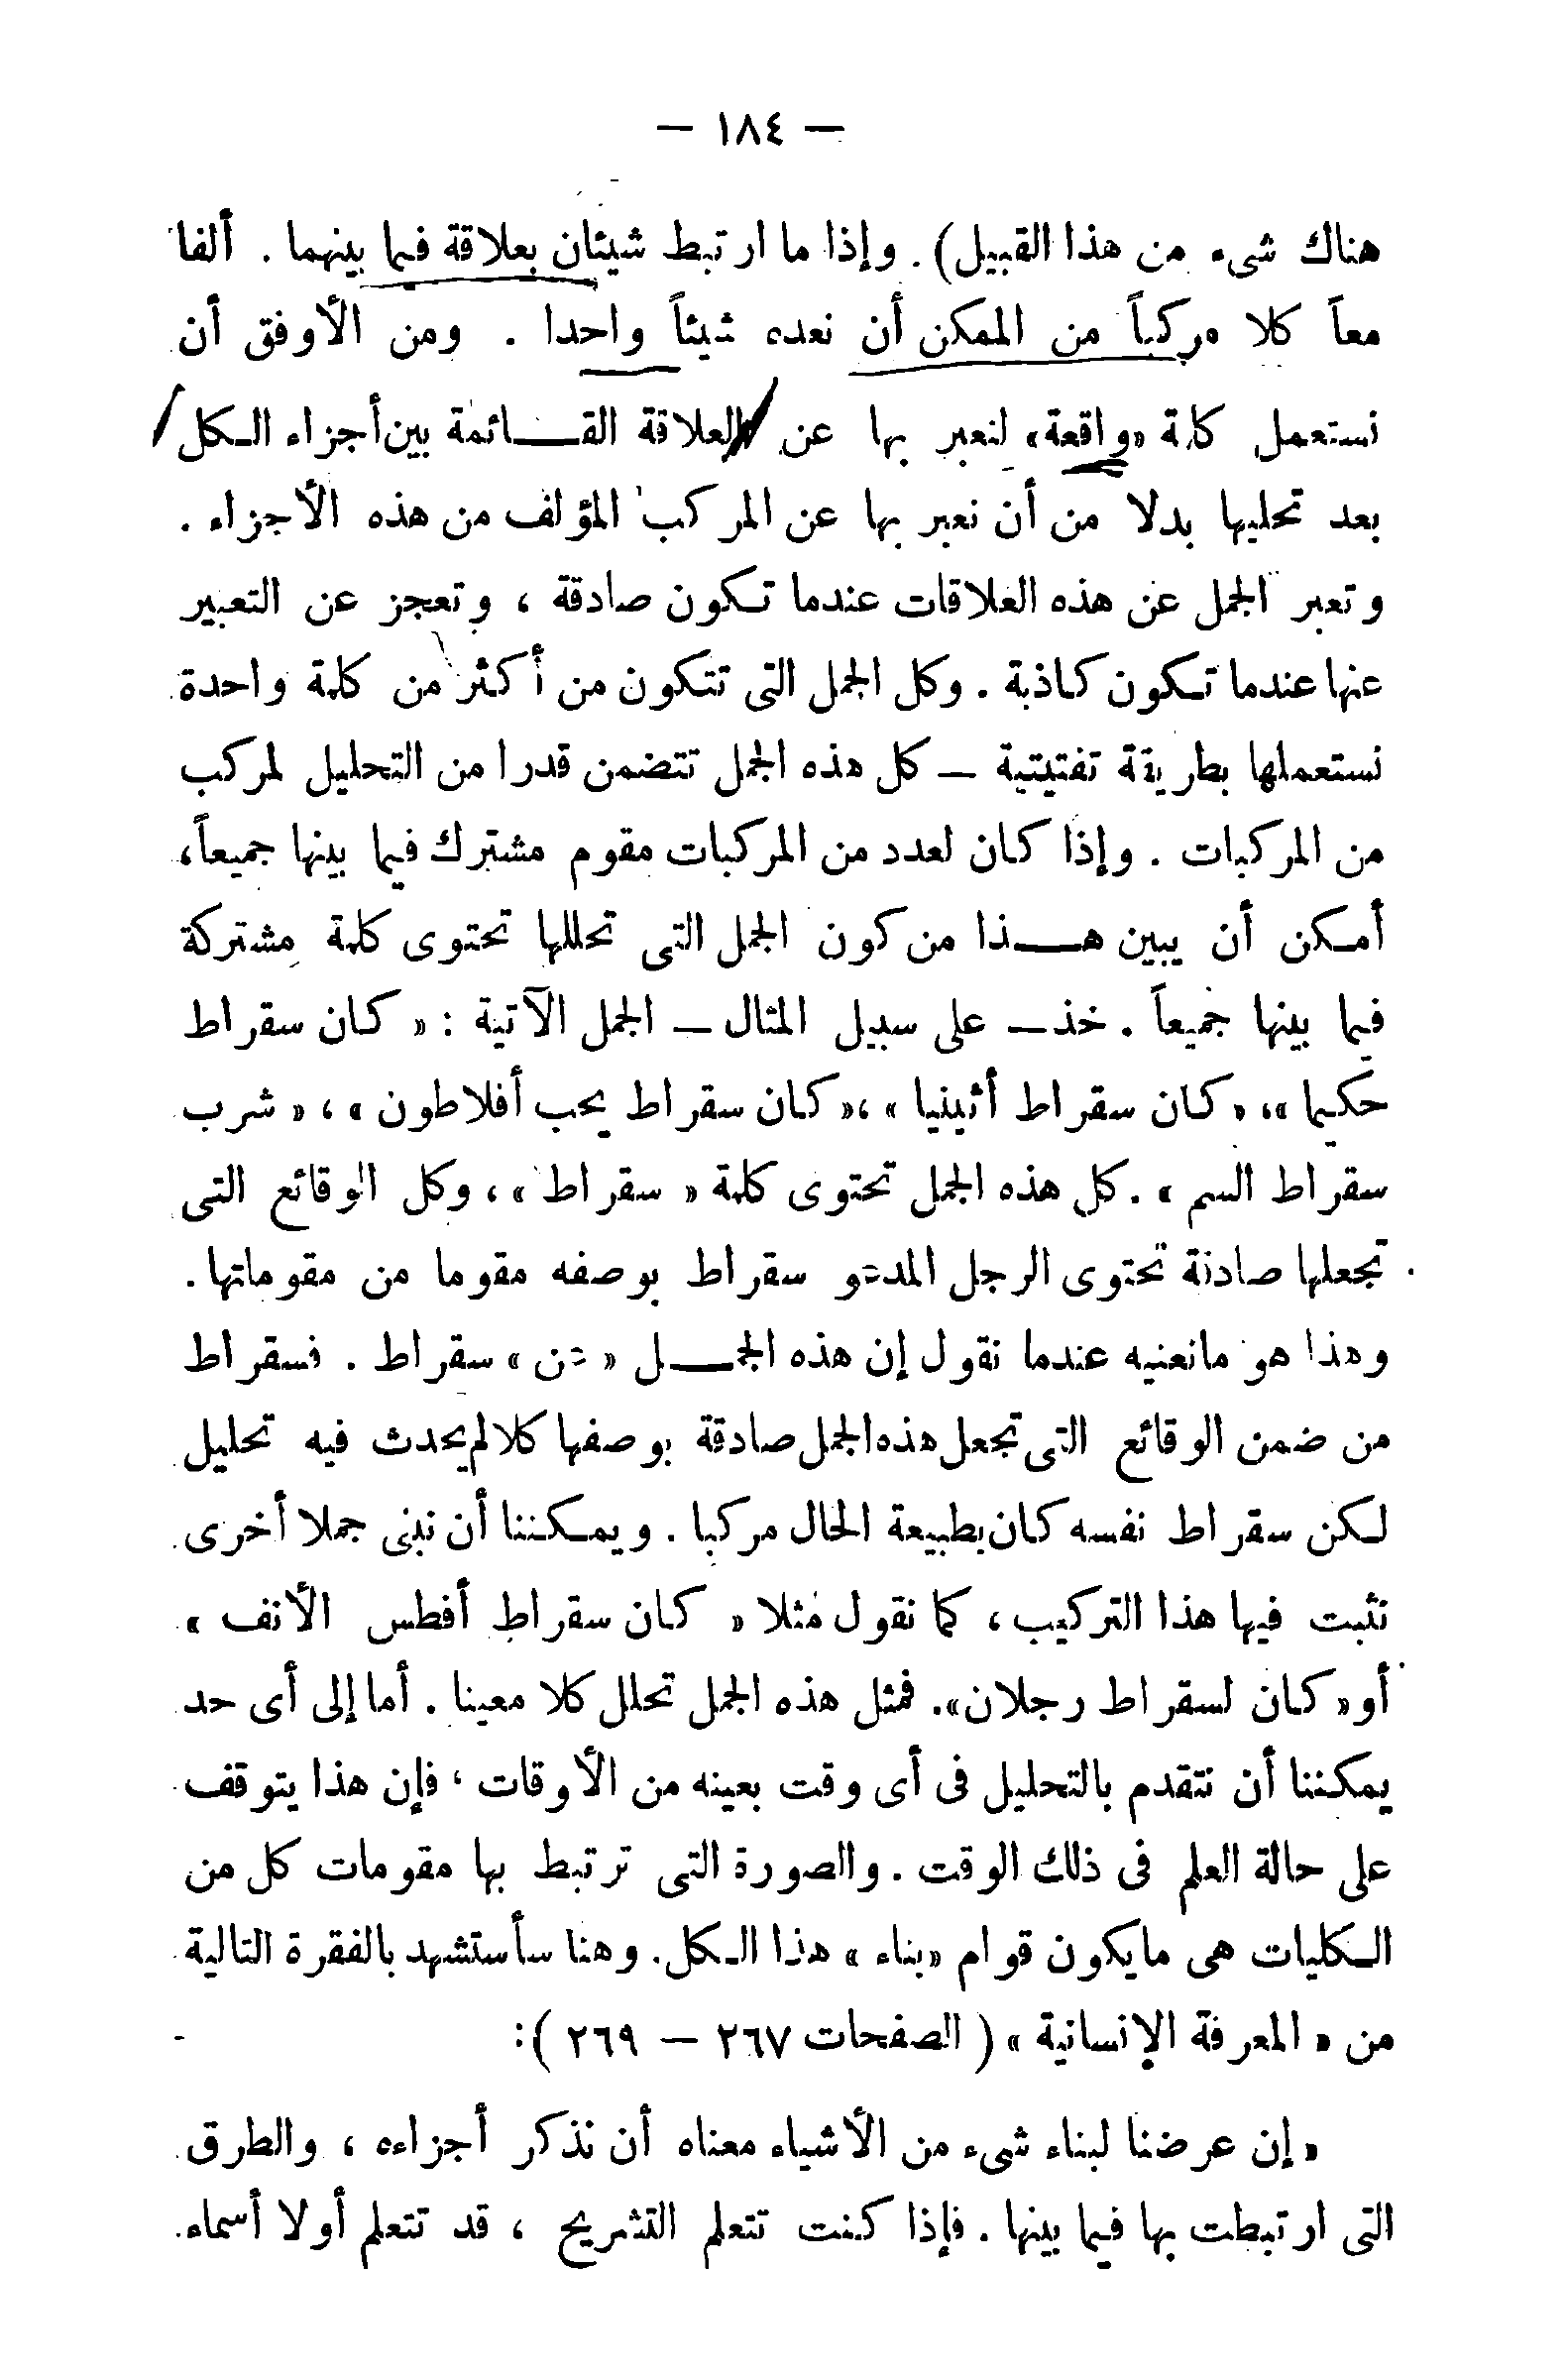 — ١٨٤ —
هناك شىء من هذا القبيل) . وإذا ما ارتبط شيئان بعلاقة فيما بينهما . ألفا
معاً كلا مركباً من الممكن أن نعده شيئاً واحدا . ومن الأوفق أن
نستعمل كلمة «واقعة» لنعبر بها عن العلاقة القـائمة بين أجزاء الكل
بعد تحليها بدلا من أن نعبر بها عن المركب المؤلف من هذه الأجزاء .
وتعبر الجمل عن هذه العلاقات عندما تكون صادقة ، وتعجز عن التعبير
عنها عندما تكون كاذبة . وكل الجمل التى تتكون من أكثر من كلمة واحدة
نستعملها بطريقة تفتيتية – كل هذه الجمل تتضمن قدرا من التحليل لمركب
من المركبات . وإذا كان لعدد من المركبات مقوم مشترك فيما بينها جميعاً،
أمكن أن يبين هـذا من كون الجمل التى تحللها تحتوى كلمة مشتركة
فيما بينها جميعاً . خذ – على سبيل المثال – الجمل الآتية : « كان سقراط
حكيما »، «كان سقراط أثينيا »،«كان سقراط يحب أفلاطون » ، « شرب
سقراط السم » . كل هذه الجمل تحتوى كلمة « سقراط » ، وكل الوقائع التى
تجعلها صادقة تحتوى الرجل المدعو سقراط بوصفه مقوما من مقوماتها .
وهذا هو مانعنيه عندما نقول إن هذه الجمـل « عن » سقراط . فسقراط
من ضمن الوقائع التى تجعل هذه الجمل صادقة بوصفها كلا لم يحدث فيه تحليل
لكن سقراط نفسه كان بطبيعة الحال مركبا . ويمكننا أن نبنى جملا أخرى
نثبت فيها هذا التركيب ، كما نقول مثلا « كان سقراط أفطس الأنف »
أو « كان لسقراط رجلان». فمثل هذه الجمل تحلل كلا معينا . أما إلى أى حد
يمكننا أن نتقدم بالتحليل فى أى وقت بعينه من الأوقات ، فإن هذا يتوقف
على حالة العلم فى ذلك الوقت . والصورة التى ترتبط بها مقومات كل من
الكليات هى مايكون قوام «بناء » هذا الكل. وهنا سأستشهد بالفقرة التالية
من « المعرفة الإنسانية » ( الصفحات ٢٦٧ – ٢٦٩ ) :
« إن عرضنا لبناء شىء من الأشياء معناه أن نذكر أجزاءه ، والطرق
التى ارتبطت بها فيما بينها . فإذا كنت تتعلم التشريح ، قد تتعلم أولا أسماء